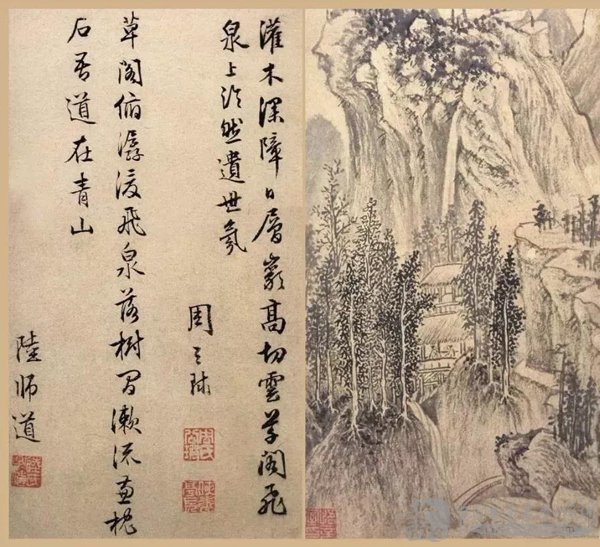 灌木深障日層巖高切雲草閣飛
泉上泠然遺世氛
周天球
草閣俯潺湲飛泉落樹間漱流兼枕
石吾道在青山
陸師道